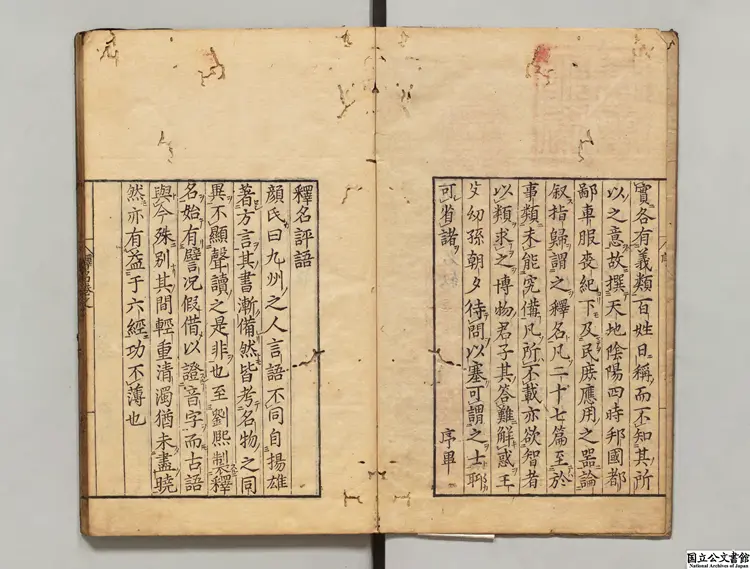 實各有義類百姓日稱而不知其所
以之意故撰天地陰陽四時邦國都
鄙車服喪紀下及民庶應用之器論
叙指歸謂之釋名凡二十七篇至於
事類未能究備凡所不載亦欲智者
以類求之博物君子其答難解惑王
父幼孫朝夕待問以塞可謂之士聊
可省諸 序畢
釋名評語
顔氏曰九州之人言語不同自揚雄
著方言其書漸備然皆考名物之同
異不顯聲讀之是非也至劉熈製釋
名始有譬况假借以證音字而古語
與今殊別其間輕重清濁猶未盡曉
然亦有益于六經功不薄也
国立公文書館
National Archives of Japan